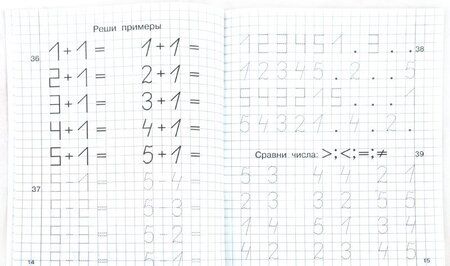 Реши примеры
36
1+1= 1+1=
2+1= 2+1=
3+1= 3+1=
4+1= 4+1=
5+1= 5+1=
37
5-1= 5-4=
5-2= 5-3=
5-3= 5-2=
5-4= 5-1=
14
1 2 3 4 5 1 . 3 . . . 38
1 2 3 4 5 . 2 . . 5
5 4 3 2 1 5 . . . 1
5 4 3 2 1 . 4 . 2 .
Сравни числа: >;<;=;≠ 39
5 3 4 4 2 1
2 3 3 2 5 5
1 4 5 1 3 4
4 2 2 3 4 5
15